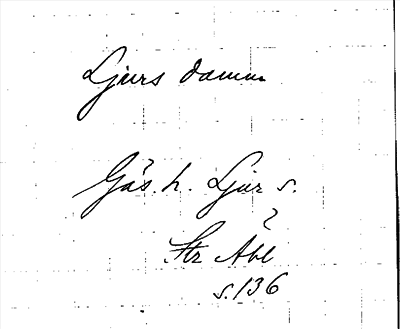 Ljurs damm
Gås. h. Ljur s.
?
Str Åbl
s. 136